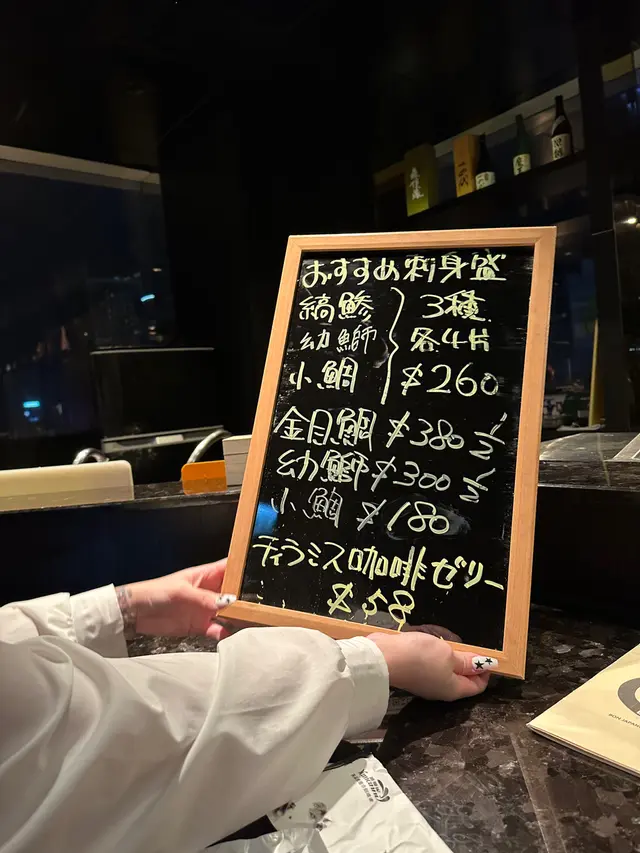 おすすめ刺身盛
縞鯵 3種
幼鰤 各4片
小鯛 $260
金目鯛 $380 1/2
幼鰤 $300 1/2
小鯛 $180
ティラミス咖啡ゼリー
$58